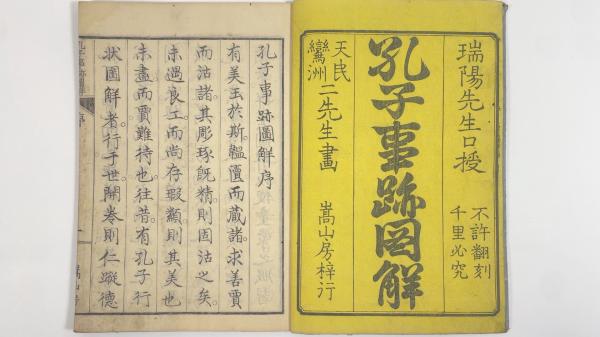 瑞陽先生口授
不許翻刻
千里必究
孔子事跡図解
天民
鸞洲
二先生畫
嵩山房梓行
孔子事跡圖解序
有美玉於斯。韞匵而藏諸。求善賈
而沽諸。其彫琢既精。則固沽之矣。
未遇良工。而尚存瑕纇。則其美也
未盡。而賈難待也。往昔。有孔子行
狀圖解者。行于世。開卷則仁蹤德